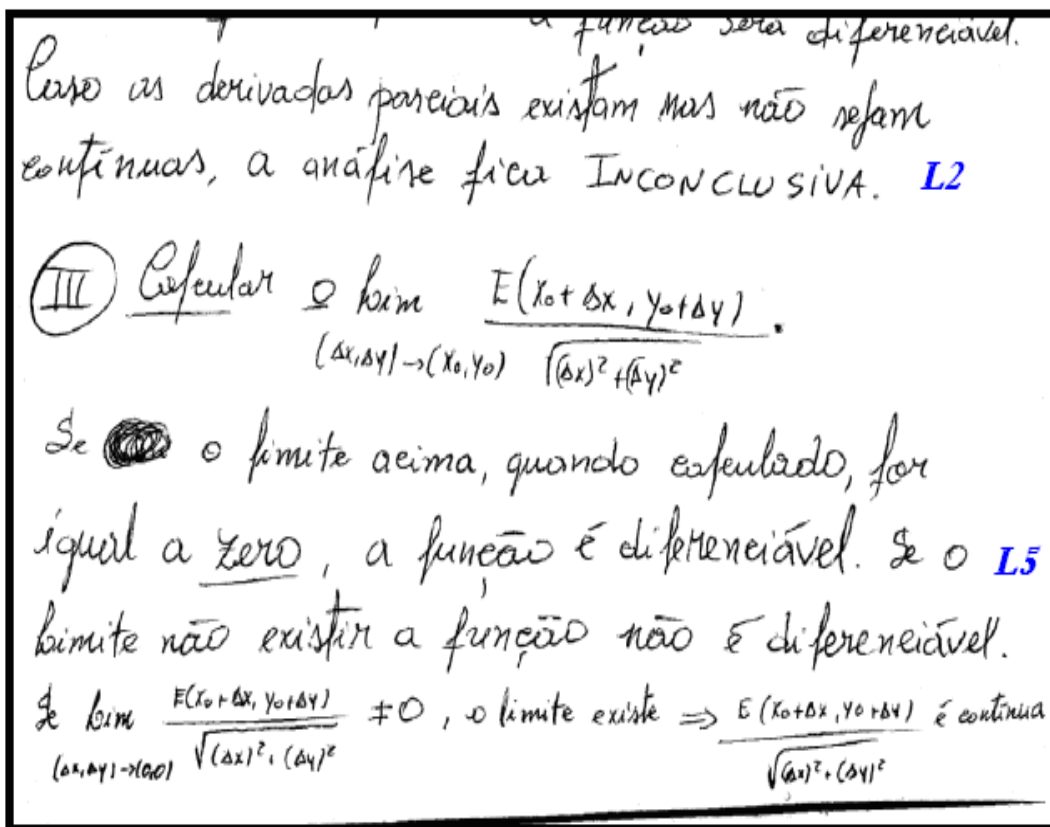 a função será diferenciável.
Caso as derivadas parciais existam mas não sejam
contínuas, a análise fica INCONCLUSIVA. L2
III Calcular o Lim E(x₀+Δx, y₀+Δy) / √(Δx)²+(Δy)² .
(Δx,Δy)→(x₀,y₀)
Se o limite acima, quando calculado, for
igual a zero, a função é diferenciável. Se o L5
Limite não existir a função não é diferenciável.
Se Lim E(x₀+Δx, y₀+Δy) / √(Δx)²+(Δy)² ≠ 0, o limite existe ⇒ E(x₀+Δx, y₀+Δy) / √(Δx)²+(Δy)² é contínua
(Δx,Δy)→(0,0)